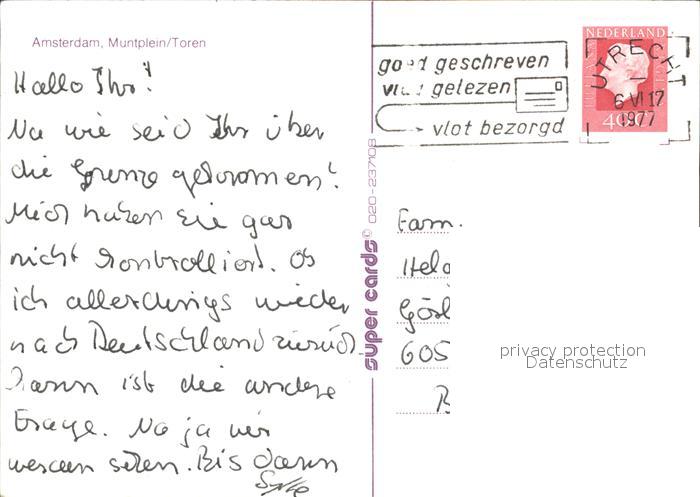 Amsterdam, Muntplein/Toren
Hallo Ihr!
Na wie seid Ihr über
die Grenze gekommen?
Mich haben sie gar
nicht kontrolliert. Ob
ich allerdings wieder
nach Deutschland zurück
kann ist die andere
Frage. Na ja wir
werden sehen. Bis dann
super cards © 020-237108
goed geschreven
vlug gelezen
vlot bezorgd
NEDERLAND
UTRECHT
6 VI 17
1977
40
Fam.
Hel
Gös
605
privacy protection
Datenschutz